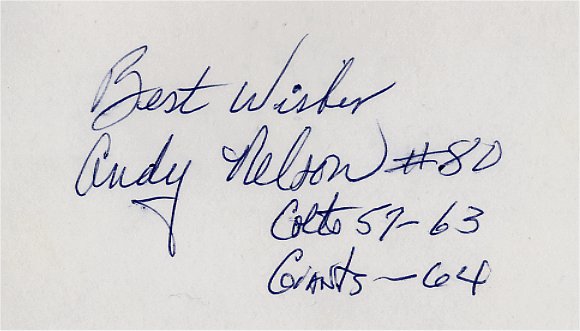 Best Wishes
Andy Nelson #80
Colts 57-63
Giants - 64